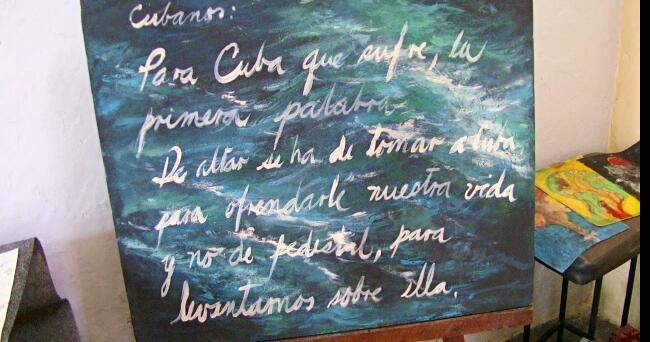 Cubanos:
Para Cuba que sufre, la
primera palabra
De altar se ha de tomar a Cuba
para ofrendarle nuestra vida
y no de pedestal, para
levantarnos sobre ella.